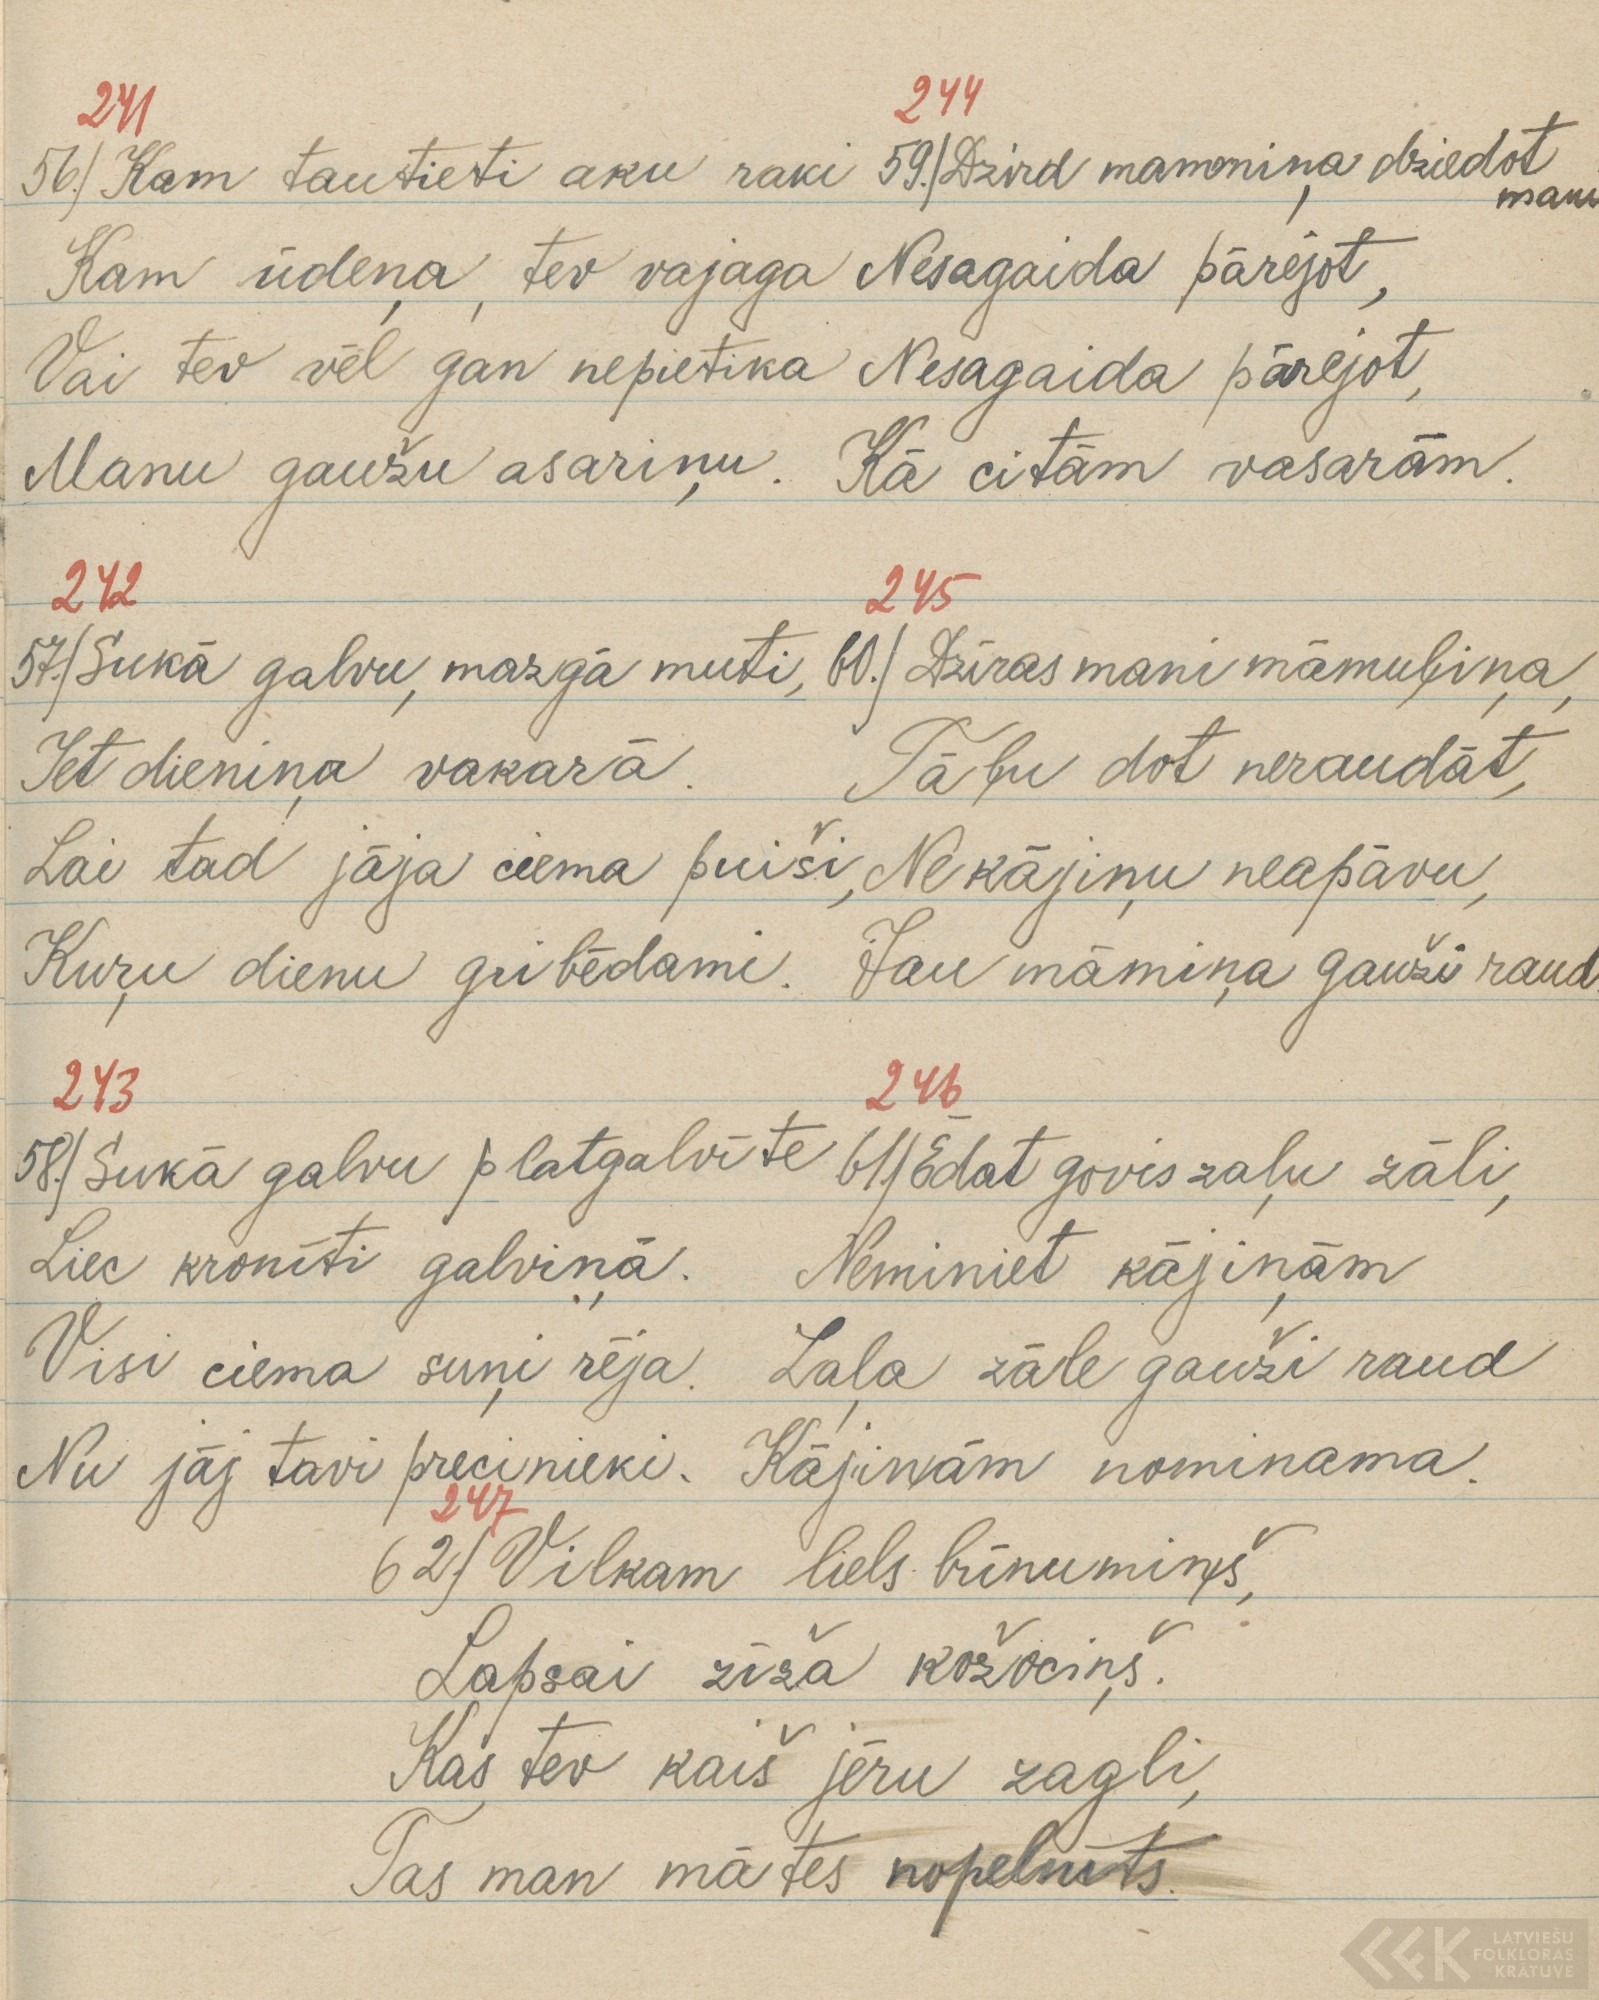 241
56.) Kam tautieti aku raki
Kam ūdeņa, tev vajaga
Vai tev vēl gan nepietika
Manu gaužu asariņu.
242
57.) Sukā galvu, mazgā muti,
Iet dieniņa vakarā.
Lai tad jāja ciema puiši,
Kuŗu dienu gribēdami.
243
58.) Sukā galvu platgalvīte
Liec kronīti galviņā.
Visi ciema suņi rēja.
Nu jāj tavi precinieki.
244
59.) Dzird mamoniņa dziedot
mani
Nesagaida pārējot,
Nesagaida pārējot,
Kā citām vasarām.
245
60.) Dzīras mani māmuliņa,
Tā lu dot neraudāt,
Ne kājiņu neapāvu,
Jau māmiņa gauži raud.
246
61.) Ēdat govis zaļu zāli,
Neminiet kājiņām
Zaļa zāle gauži raud
Kājinām nominama.
247
62.) Vilkam liels būnumiņš,
Lapsai zīža kožociņš.
Kas tev kaiš jēru zagli,
Tas man mātes nopelnīts.
LATVIEŠU
FOLKLORAS
KRĀTUVE